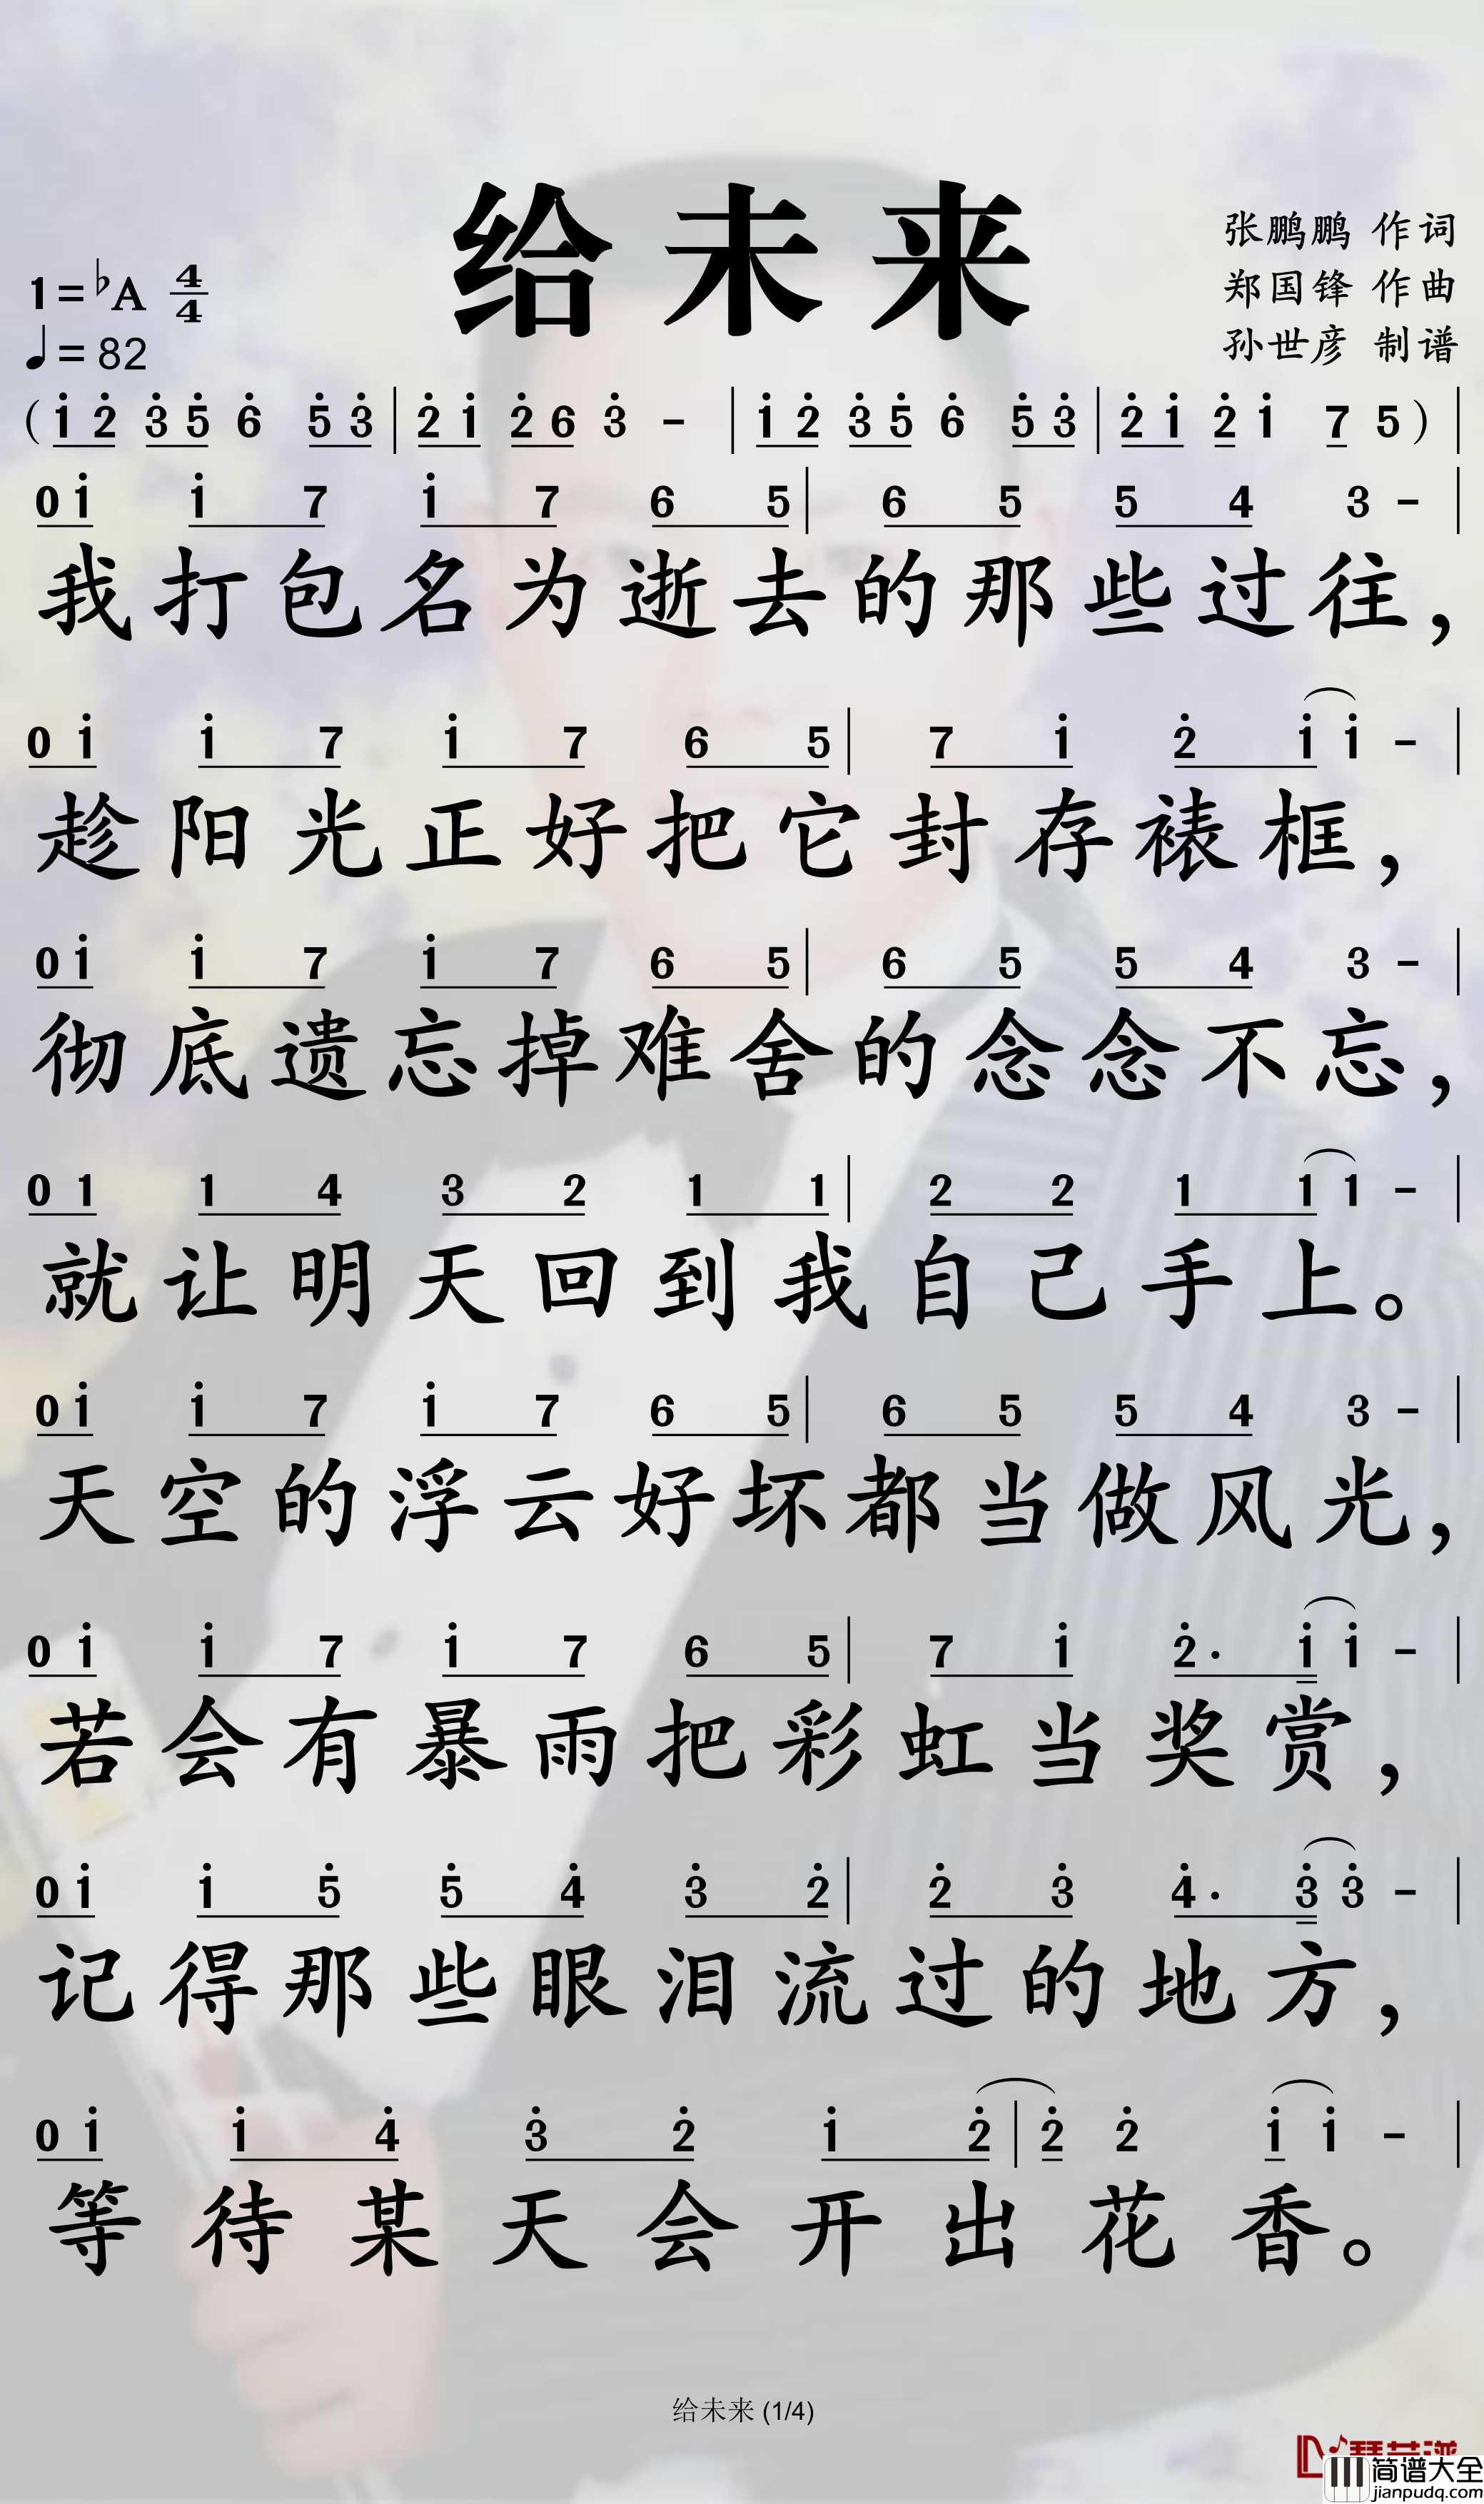 给未来
张鹏鹏 作词
郑国锋 作曲
孙世彦 制谱
1=♭A 4/4
♩=82
( i̲ 2̲̇ 3̲̇ 5̲̇ 6̇ 5̲̇ 3̲̇ | 2̲̇ i̲ 2̲̇ 6̲ 3̇ - | i̲ 2̲̇ 3̲̇ 5̲̇ 6̇ 5̲̇ 3̲̇ | 2̲̇ i̲ 2̲̇ i 7̲ 5 ) |
0 i i 7 i 7 6 5 | 6 5 5 4 3 - |
我打包名为逝去的那些过往，
0 i i 7 i 7 6 5 | 7 i 2̇ i i - |
趁阳光正好把它封存裱框，
0 i i 7 i 7 6 5 | 6 5 5 4 3 - |
彻底遗忘掉难舍的念念不忘，
0 1 1 4 3 2 1 1 | 2 2 1 1 1 - |
就让明天回到我自己手上。
0 i i 7 i 7 6 5 | 6 5 5 4 3 - |
天空的浮云好坏都当做风光，
0 i i 7 i 7 6 5 | 7 i 2̇· i i - |
若会有暴雨把彩虹当奖赏，
0 i i 5̇ 5̇ 4̇ 3̇ 2̇ | 2̇ 3̇ 4̇· 3̇ 3̇ - |
记得那些眼泪流过的地方，
0 i i 4̇ 3̇ 2̇ i 2̇ | 2̇ 2̇ i i - |
等待某天会开出花香。
给未来 (1/4)
简谱大全
jianpudq.com